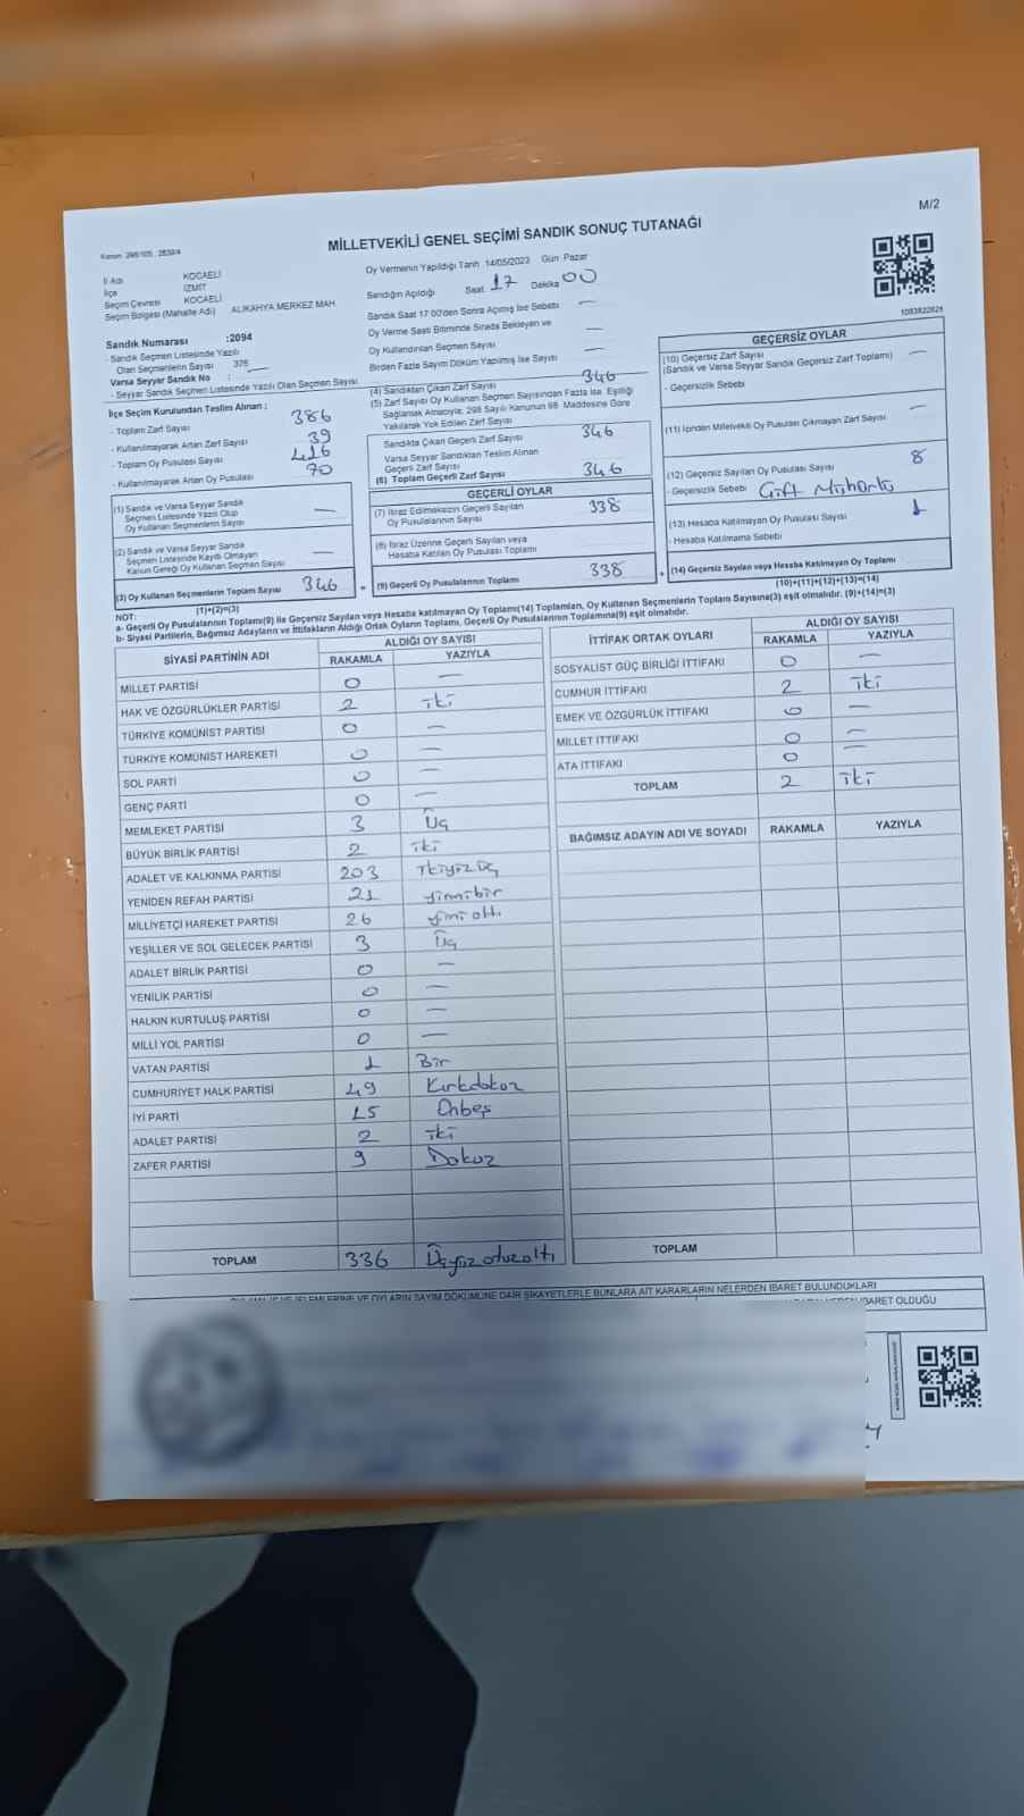 M/2
MİLLETVEKİLİ GENEL SEÇİMİ SANDIK SONUÇ TUTANAĞI
İl Adı KOCAELİ
İlçe İZMİT
Seçim Çevresi KOCAELİ
Seçim Bölgesi (Mahalle Adı) ALİKAHYA MERKEZ MAH.
Oy Vermenin Yapıldığı Tarih 14/05/2023 Gün Pazar
Sandığın Açıldığı Saat 17 Dakika 00
Sandık Saat 17:00'den Sonra Açılmış İse Sebebi —
Oy Verme Saati Bitiminde Sırada Bekleyen ve
Oy Kullandırılan Seçmen Sayısı —
Birden Fazla Sayım Döküm Yapılmış İse Sayısı —
Sandık Numarası :2094
- Sandık Seçmen Listesinde Yazılı
Olan Seçmenlerin Sayısı 376
Varsa Seyyar Sandık No : —
- Seyyar Sandık Seçmen Listesinde Yazılı Olan Seçmen Sayısı
İlçe Seçim Kurulundan Teslim Alınan :
- Toplam Zarf Sayısı 386
- Kullanılmayarak Artan Zarf Sayısı 39
- Toplam Oy Pusulası Sayısı 416
- Kullanılmayarak Artan Oy Pusulası 70
(1) Sandık ve Varsa Seyyar Sandık
Seçmen Listesinde Yazılı Olup
Oy Kullanan Seçmenlerin Sayısı —
(2) Sandık ve Varsa Seyyar Sandık
Seçmen Listesinde Kaydı Olmayan
Kanun Gereği Oy Kullanan Seçmen Sayısı —
(3) Oy Kullanan Seçmenlerin Toplam Sayısı 346
(1)+(2)=(3)
(4) Sandıktan Çıkan Zarf Sayısı 346
(5) Zarf Sayısı Oy Kullanan Seçmen Sayısından Fazla İse, Eşitliği
Sağlamak Amacıyla, 298 Sayılı Kanunun 98. Maddesine Göre
Yakılarak Yok Edilen Zarf Sayısı
Sandıkta Çıkan Geçerli Zarf Sayısı 346
Varsa Seyyar Sandıktan Teslim Alınan
Geçerli Zarf Sayısı
(6) Toplam Geçerli Zarf Sayısı 346
GEÇERLİ OYLAR
(7) İtiraz Edilmeksizin Geçerli Sayılan
Oy Pusulalarının Sayısı 338
(8) İtiraz Üzerine Geçerli Sayılan veya
Hesaba Katılan Oy Pusulası Toplamı
(9) Geçerli Oy Pusulalarının Toplamı 338
GEÇERSİZ OYLAR
(10) Geçersiz Zarf Sayısı
(Sandık ve Varsa Seyyar Sandık Geçersiz Zarf Toplamı) —
- Geçersizlik Sebebi
(11) İçinden Milletvekili Oy Pusulası Çıkmayan Zarf Sayısı —
(12) Geçersiz Sayılan Oy Pusulası Sayısı 8
- Geçersizlik Sebebi Çift Mühürlü
(13) Hesaba Katılmayan Oy Pusulası Sayısı 1
- Hesaba Katılmama Sebebi
(14) Geçersiz Sayılan veya Hesaba Katılmayan Oy Toplamı
(10)+(11)+(12)+(13)=(14)
NOT:
a- Geçerli Oy Pusulalarının Toplamı(9) ile Geçersiz Sayılan veya Hesaba katılmayan Oy Toplamı(14) Toplamları, Oy Kullanan Seçmenlerin Toplam Sayısına(3) eşit olmalıdır. (9)+(14)=(3)
b- Siyasi Partilerin, Bağımsız Adayların ve İttifakların Aldığı Ortak Oyların Toplamı, Geçerli Oy Pusulalarının Toplamına(9) eşit olmalıdır.
SİYASİ PARTİNİN ADI ALDIĞI OY SAYISI
RAKAMLA YAZIYLA
MİLLET PARTİSİ 0 —
HAK VE ÖZGÜRLÜKLER PARTİSİ 2 iki
TÜRKİYE KOMÜNİST PARTİSİ 0 —
TÜRKİYE KOMÜNİST HAREKETİ 0 —
SOL PARTİ 0 —
GENÇ PARTİ 0 —
MEMLEKET PARTİSİ 3 Üç
BÜYÜK BİRLİK PARTİSİ 2 iki
ADALET VE KALKINMA PARTİSİ 203 İkiyüzüç
YENİDEN REFAH PARTİSİ 21 yirmibir
MİLLİYETÇİ HAREKET PARTİSİ 26 yirmi altı
YEŞİLLER VE SOL GELECEK PARTİSİ 3 Üç
ADALET BİRLİK PARTİSİ 0 —
YENİLİK PARTİSİ 0 —
HALKIN KURTULUŞ PARTİSİ 0 —
MİLLİ YOL PARTİSİ 0 —
VATAN PARTİSİ 1 Bir
CUMHURİYET HALK PARTİSİ 49 Kırkdokuz
İYİ PARTİ 15 Onbeş
ADALET PARTİSİ 2 iki
ZAFER PARTİSİ 9 Dokuz
TOPLAM 336 Üçyüz otuzaltı
İTTİFAK ORTAK OYLARI ALDIĞI OY SAYISI
RAKAMLA YAZIYLA
SOSYALİST GÜÇ BİRLİĞİ İTTİFAKI 0 —
CUMHUR İTTİFAKI 2 iki
EMEK VE ÖZGÜRLÜK İTTİFAKI 0 —
MİLLET İTTİFAKI 0 —
ATA İTTİFAKI 0 —
TOPLAM 2 iki
BAĞIMSIZ ADAYIN ADI VE SOYADI RAKAMLA YAZIYLA
TOPLAM
OYLARIN SAYIM DÖKÜMÜNE DAİR ŞİKAYETLERLE BUNLARA AİT KARARLARIN NELERDEN İBARET BULUNDUKLARI